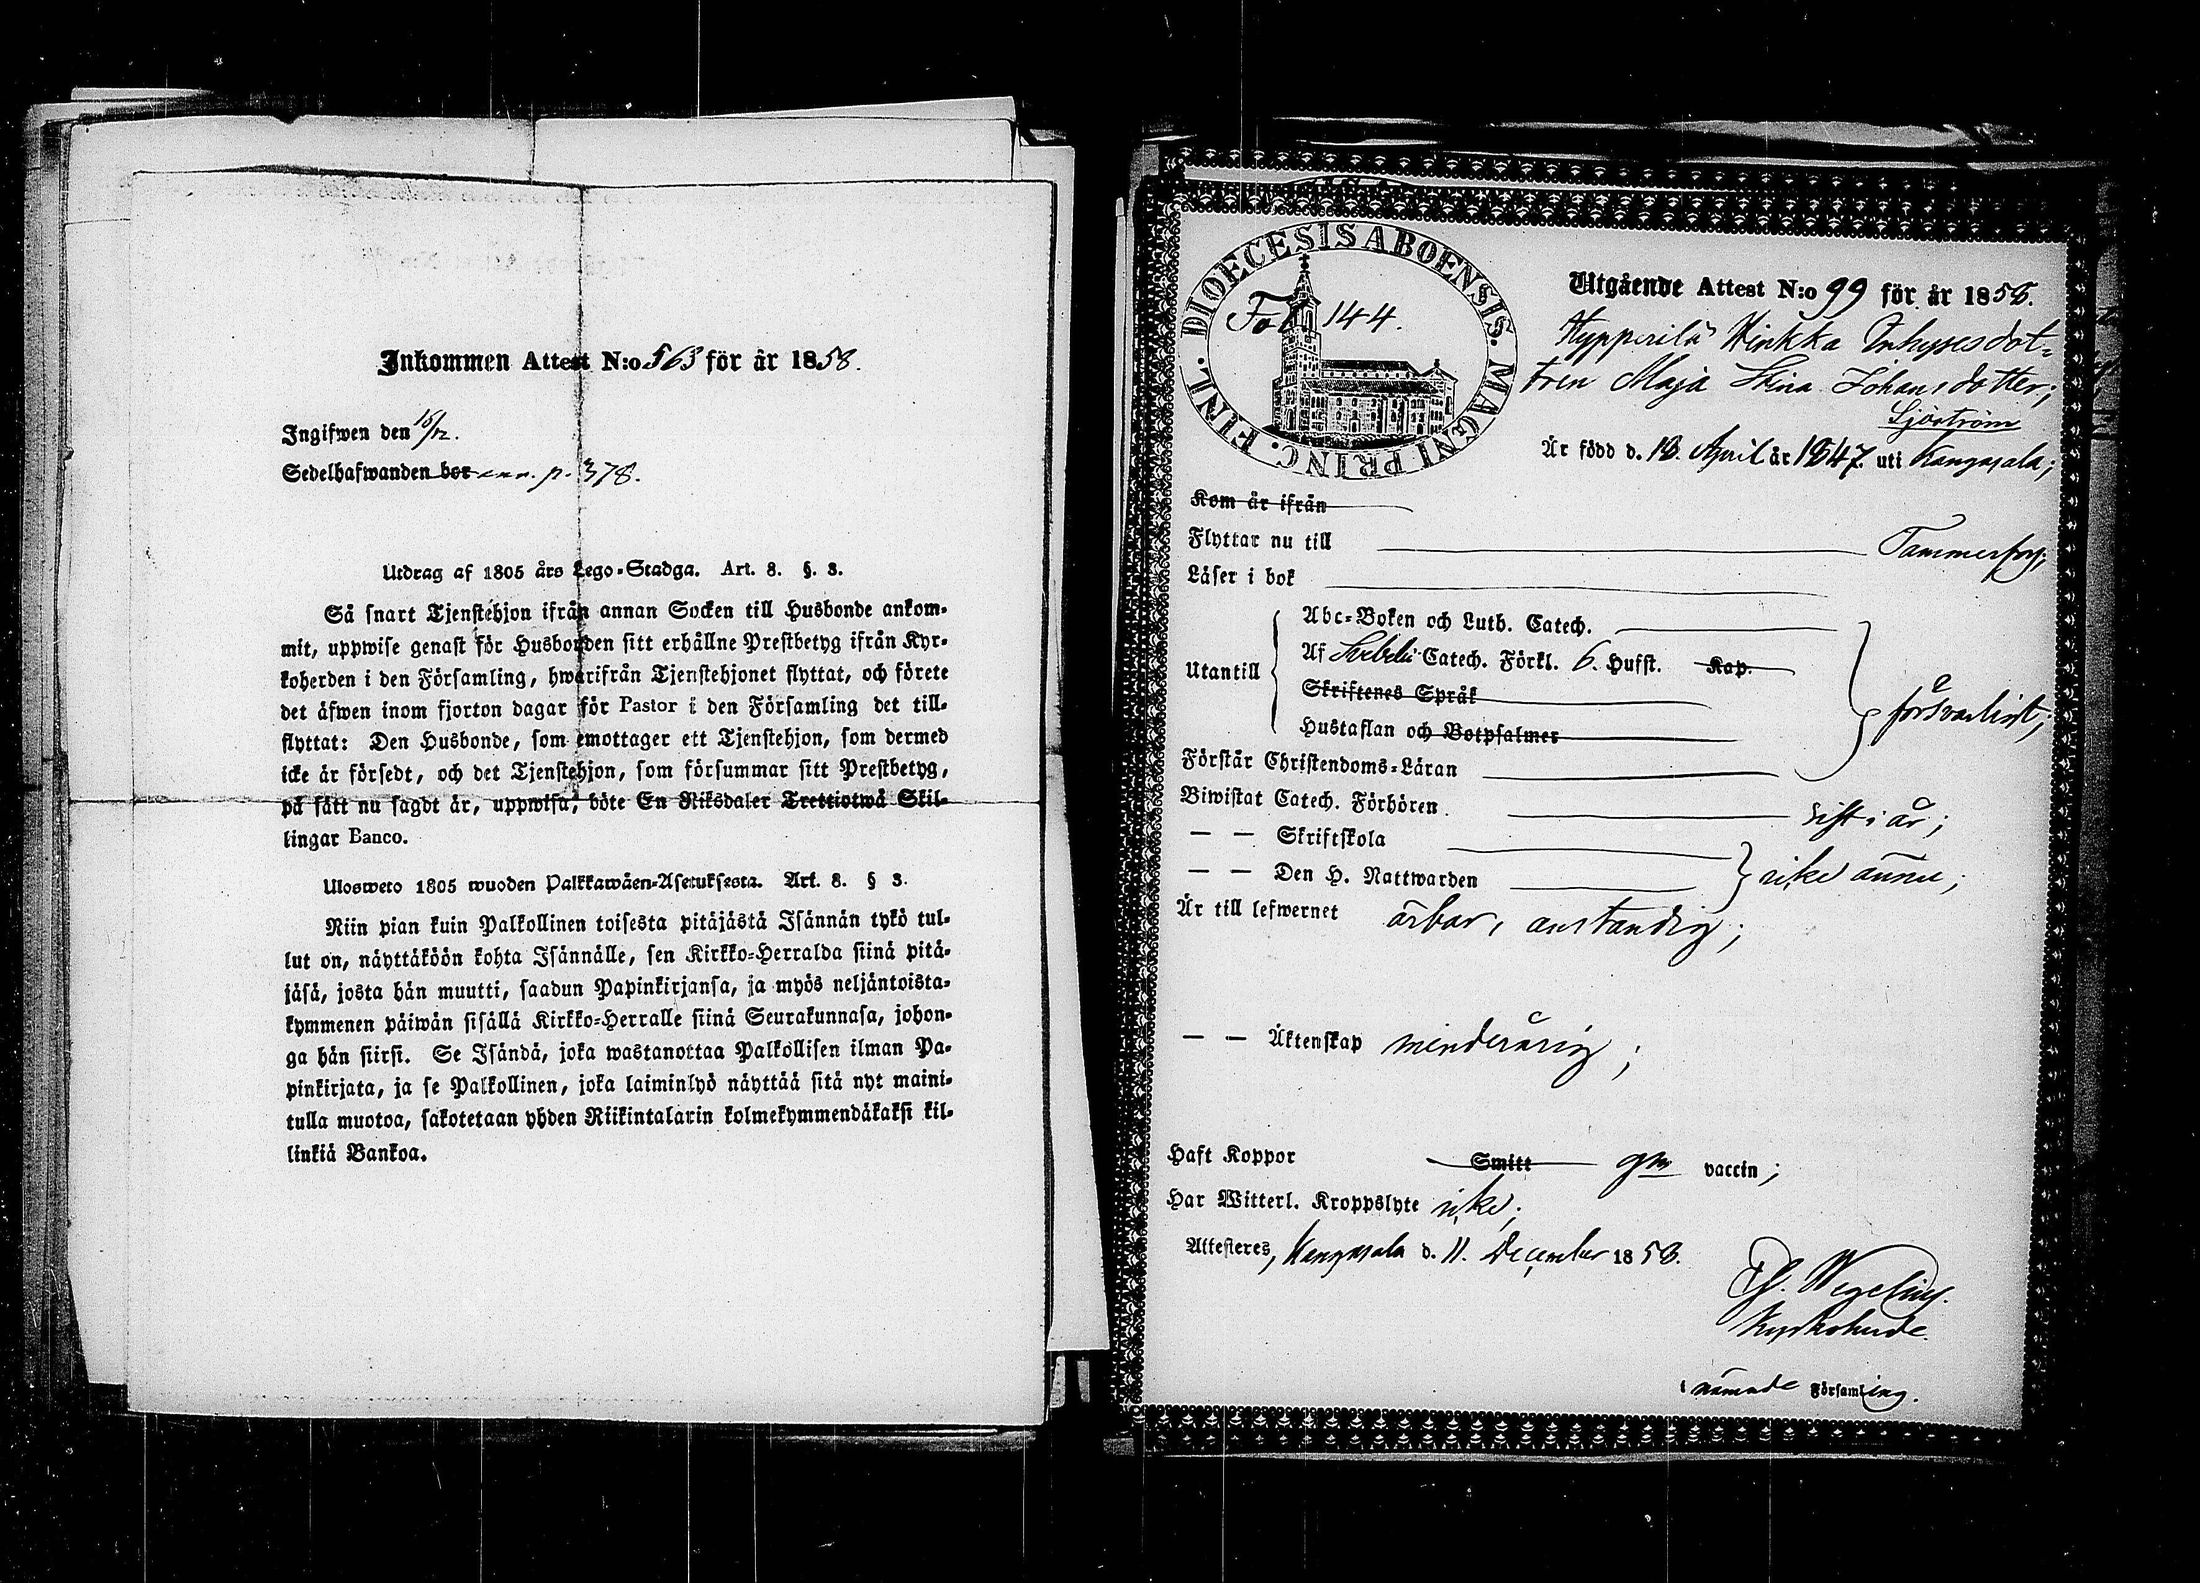 Inkommen Attest N:o 563 för år 1858.
Ingifwen den 18/12.
Sedelhafwanden bor ann. p. 378.
Utdrag af 1805 års Lego-Stadga. Art. 8. §. 3.
Så snart Tjenstehjon ifrån annan Socken till Husbonde ankom-
mit, uppwise genast för Husbonden sitt erhållne Prestbetyg ifrån Kyr-
koherden i den Församling, hwarifrån Tjenstehjonet flyttat, och förete
det äfwen inom fjorton dagar för Pastor i den Församling det till-
flyttat: Den Husbonde, som emottager ett Tjenstehjon, som dermed
icke är försedt, och det Tjenstehjon, som försummar sitt Prestbetyg,
på sätt nu sagdt är, uppwisa, böte En Riksdaler Trettiotwå Skil-
lingar Banco.
Ulosweto 1805 wuoden Palkkawäen-Asetuksesta. Art. 8. § 3.
Niin pian kuin Palkollinen toisesta pitäjästä Isännän tykö tul-
lut on, näyttäköön kohta Isännälle, sen Kirkko-Herralda siinä pitä-
jäsä, josta hän muutti, saadun Papinkirjansa, ja myös neljäntoista-
kymmenen päiwän sisällä Kirkko-Herralle siinä Seurakunnasa, johon-
ga hän siirsi. Se Isändä, joka wastanottaa Palkollisen ilman Pa-
pinkirjata, ja se Palkollinen, joka laiminlyö näyttää sitä nyt maini-
tulla muotoa, sakotetaan yhden Riikintalarin kolmekymmendäkaksi kil-
linkiä Bankoa.
DIOECESIS ABOENSIS. MAGNI PRINC. FINL.
Fol 144.
Utgående Attest N:o 99 för år 1858.
Hypperilä Hinkka Inhysesdot-
tren Maja Stina Johansdotter;
Sjöström
Är född d. 18. April år 1847. uti Kangasala;
Kom år ifrån
Flyttar nu till Tammerfors;
Läser i bok
Abc-Boken och Luth. Catech.
Utantill Af Svebelii Catech. Förkl. 6. Hufst. Kap.
Skriftenes Språk
Hustaflan och Botpsalmer
försvarligt;
Förstår Christendoms-Läran
Biwistat Catech. Förhören sist i år;
— — Skriftskola
— — Den H. Nattwarden icke ännu;
Är till lefwernet ärbar, anständig;
— — Äktenskap minderårig;
Haft Koppor Smitt gm vaccin;
Har Witterl. Kroppslyte icke;
Attesteres, Kangasala d. 11. December 1858.
Th. Wegelius.
Kyrkoherde.
i nämnde Församling.